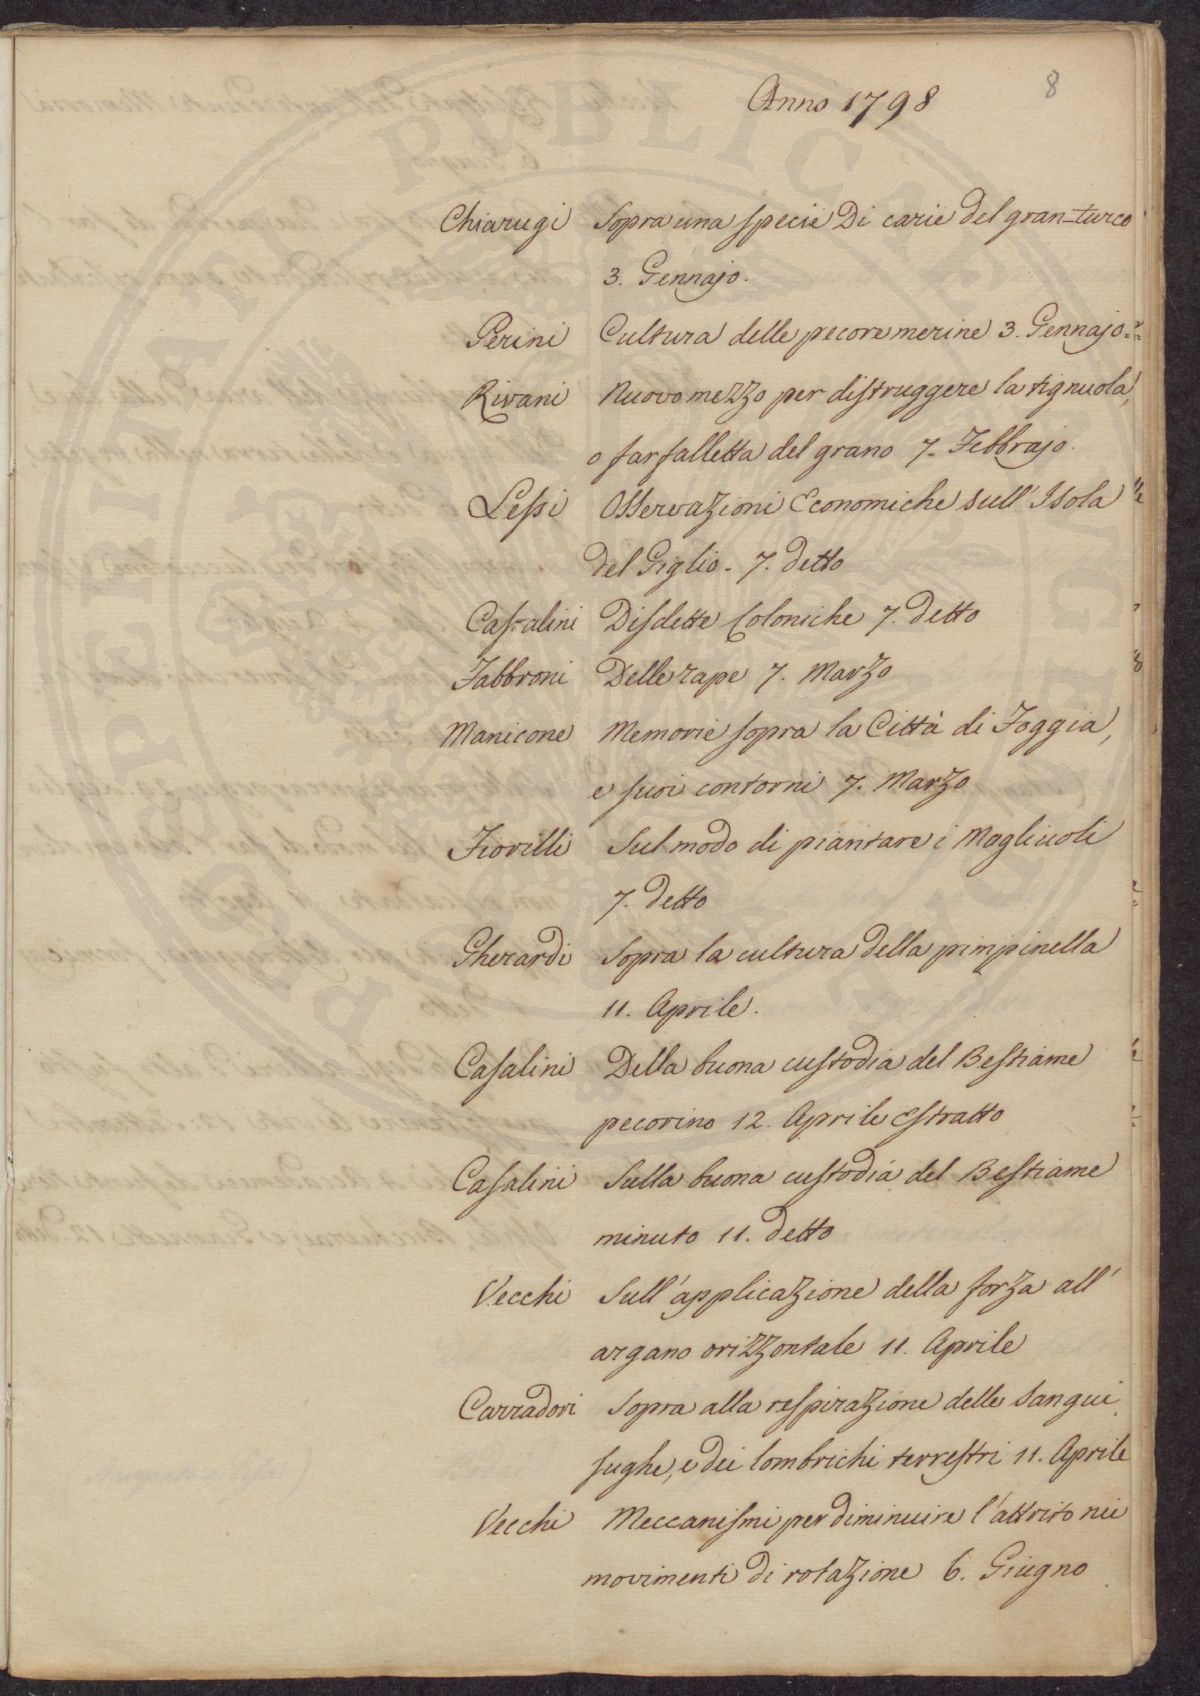 Anno 1798
8
Chiarugi Sopra una specie Di carie del gran-turco
3. Gennajo.
Perini Cultura delle pecore merine 3. Gennajo.
Rivani Nuovo mezzo per distruggere la tignuola,
o farfalletta del grano 7. Febbrajo.
Lessi Osservazioni Economiche sull' Isola
del Giglio. 7. detto
Casalini Disdette Coloniche 7. detto
Fabbroni Delle rape 7. Marzo
Manicone Memorie sopra la Città di Foggia,
e suoi contorni 7. Marzo
Fiorilli Sul modo di piantare i Magliuoli
7. detto
Gherardi Sopra la cultura della pimpinella
11. Aprile.
Casalini Della buona custodia del Bestiame
pecorino 12. Aprile Estratto
Casalini Sulla buona custodia del Bestiame
minuto 11. detto
Vecchi Sull' applicazione della forza all'
argano orizzontale 11. Aprile
Carradori Sopra alla respirazione delle Sangui
sughe, e dei lombrichi terrestri 11. Aprile
Vecchi Meccanismi per diminuire l'attrito nei
movimenti di rotazione 6. Giugno